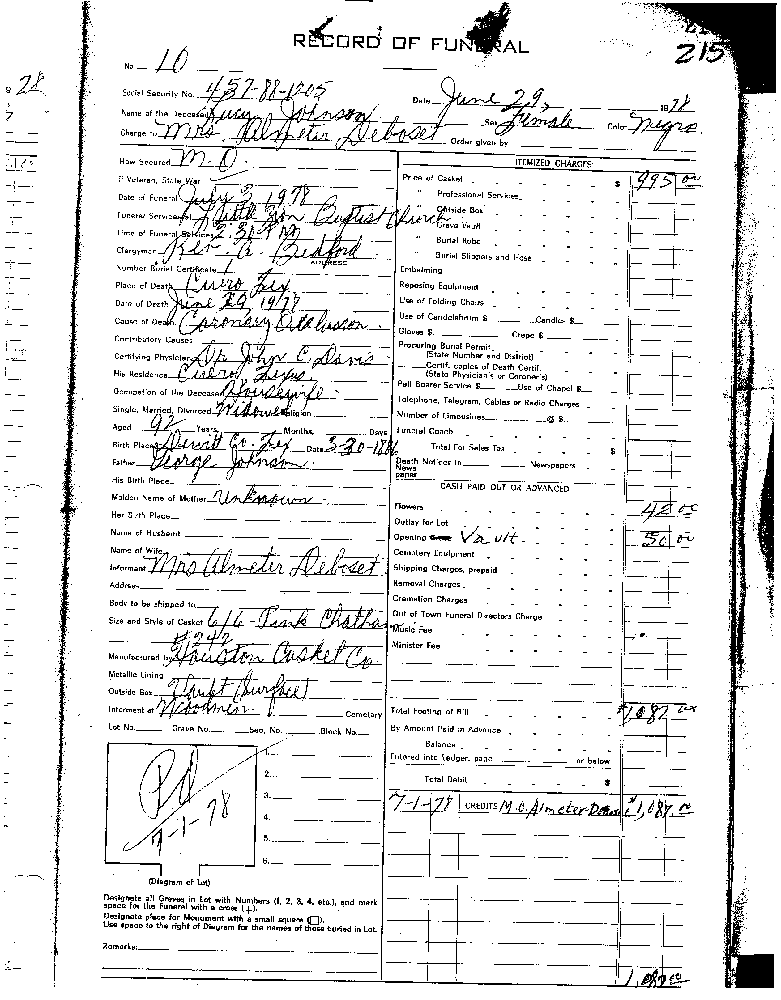 RECORD OF FUNERAL
215
No. 10
28
Social Security No. 457-88-1205
Date June 29, 1978
Name of the Deceased Lucy Johnson Sex Female Color Negro
Charge to Mrs. Almeter Deboset Order given by
How Secured M.O.
If Veteran, State War
Date of Funeral July 3, 1978
Funeral Services at Little Zion Baptist Church
Time of Funeral Services 2:30 P.M
Clergyman Rev. A. Bedford
ADDRESS
Number Burial Certificate 1
Place of Death Cuero Tex
Date of Death June 29 1978
Cause of Death Coronary Occlusion
Contributory Causes
Certifying Physician Dr. John C. Davis
His Residence Cuero, Texas
Occupation of the Deceased Housewife
Single, Married, Divorced Widowed Religion
Aged 92 Years, Months, Days
Birth Place Dewitt Co. Tex Date 3-30-1886
Father George Johnson
His Birth Place
Maiden Name of Mother Unknown
Her Birth Place
Name of Husband
Name of Wife
Informant Mrs Almeter Deboset
Address
Body to be shipped to
Size and Style of Casket 6/6 - Pink Chatham
#242
Manufactured by Houston Casket Co.
Metallic Lining
Outside Box Vault (Surface)
Interment at Woodmen Cemetery
Lot No. Grave No. Sec. No. Block No.
Pd
7-1-78
1.
2.
3.
4.
5.
6.
(Diagram of Lot)
Designate all Graves in Lot with Numbers (1, 2, 3, 4, etc.), and mark
space for the Funeral with a cross (+).
Designate place for Monument with a small square (□).
Use space to the right of Diagram for the names of those buried in Lot.
Remarks:
ITEMIZED CHARGES:
Price of Casket $ 995 00
" Professional Services
" Outside Box
" Grave Vault
" Burial Robe
" Burial Slippers and Hose
Embalming
Reposing Equipment
Use of Folding Chairs
Use of Candelabrum $ Candles $
Gloves $ Crepe $
Procuring Burial Permit
(State Number and District)
Certif. copies of Death Certif.
(State Physician's or Coroner's)
Pall Bearer Service $ Use of Chapel $
Telephone, Telegram, Cables or Radio Charges
Number of Limousines @ $
Funeral Coach
Total For Sales Tax $
Death Notices in Newspapers
News
paper
CASH PAID OUT OR ADVANCED
Flowers 42 00
Outlay for Lot
Opening Vault 50 00
Cemetery Equipment
Shipping Charges, prepaid
Removal Charges
Cremation Charges
Out of Town Funeral Directors Charge
Music Fee
Minister Fee
Total Footing of Bill $1087 00
By Amount Paid in Advance
Balance
Entered into Ledger, page or below
Total Debit $
7-1-78 CREDITS M.O. Almeter $1,087.00
1,087 00